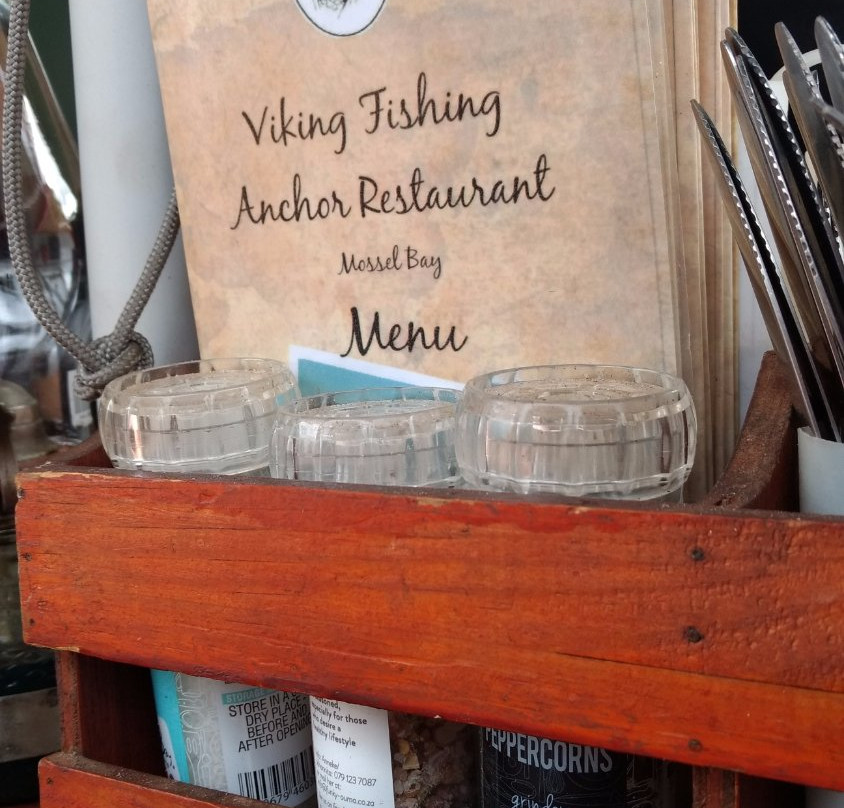 Viking Fishing
Anchor Restaurant
Mossel Bay
Menu
STORE IN A
DRY PLACE
BEFORE AND
AFTER OPENING
especially for those
who desire a
healthy lifestyle
079 123 7087
PEPPERCORNS